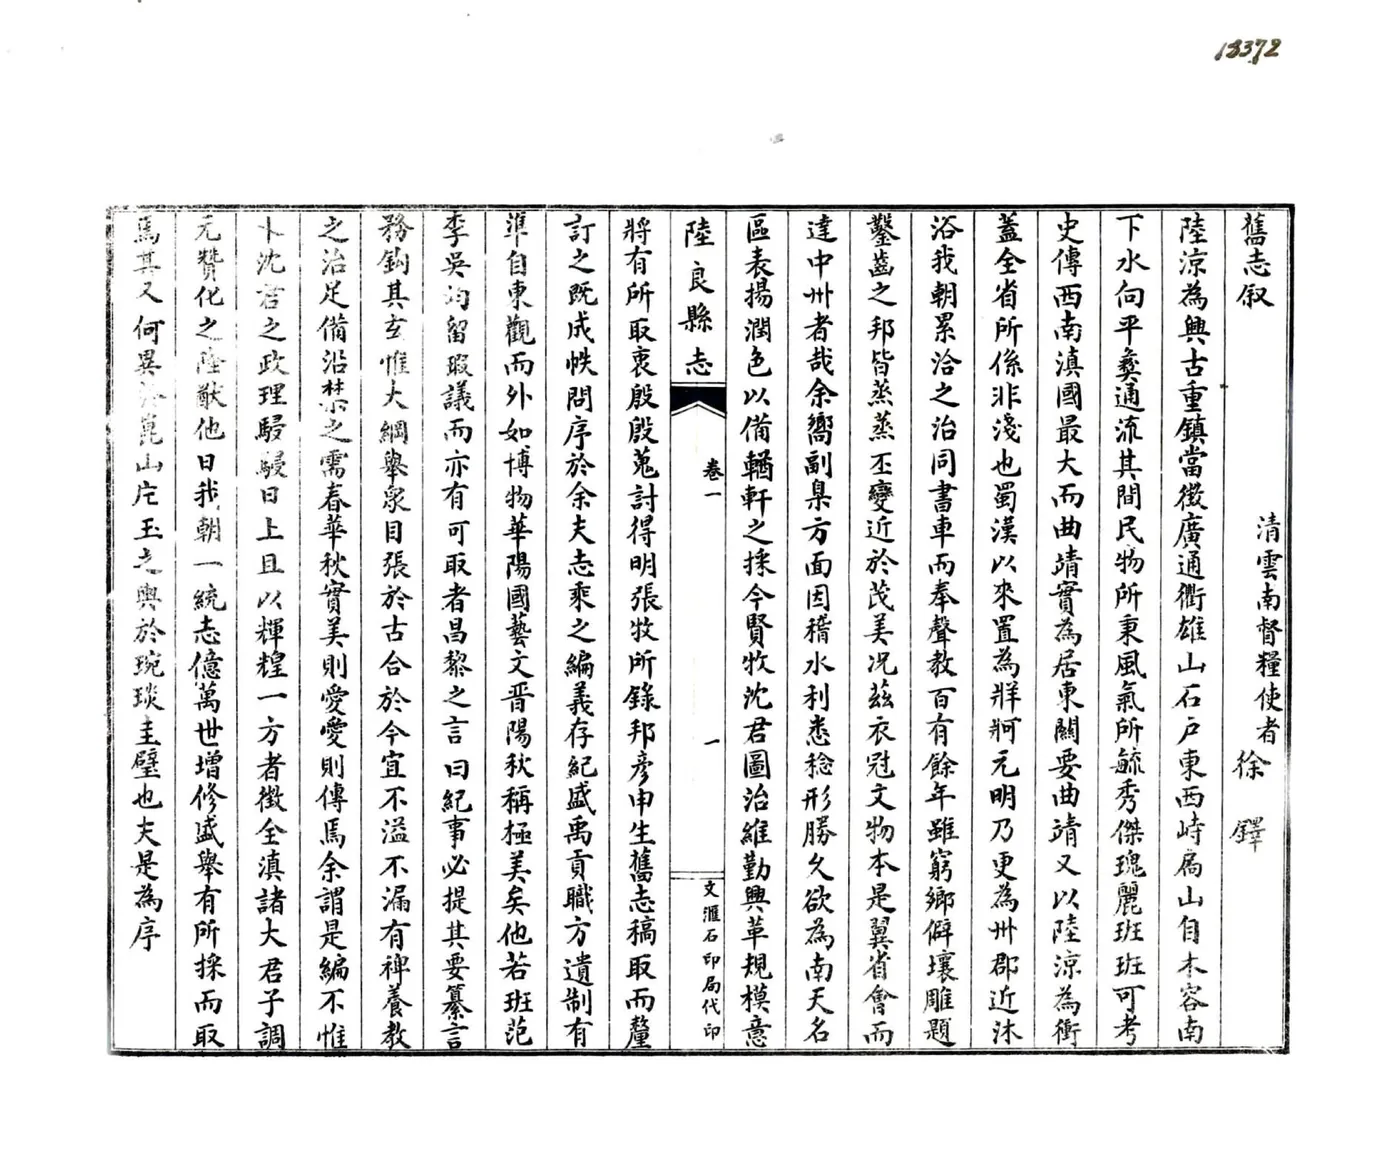 13372
舊志叙
清雲南督糧使者 徐 鐸
陸涼為興古重鎮當徵廣通衢雄山石戶東西峙扃山自木容南
下水向平彝通流其間民物所秉風氣所毓秀傑瑰麗班班可考
史傳西南滇國最大而曲靖實為居東關要曲靖又以陸涼為衝
蓋全省所係非淺也蜀漢以來置為牂牁元明乃更為州郡近沐
浴我朝累洽之治同書車而奉聲教百有餘年雖窮鄉僻壤雕題
鑿齒之邦皆蒸蒸丕變近於茂美况茲衣冠文物本是翼省會而
達中州者哉余嚮副臬方面因稽水利悉稔形勝久欲為南天名
區表揚潤色以備輶軒之採今賢牧沈君圖治維勤興革規模意
陸良縣志
卷一
一
文滙石印局代印
將有所取裒殷殷蒐討得明張牧所錄邦彥申生舊志稿取而釐
訂之既成帙問序於余夫志乘之編義存紀盛禹貢職方遺制有
準自東觀而外如博物華陽國藝文晋陽秋稱極美矣他若班范
李吳均留瑕議而亦有可取者昌黎之言曰紀事必提其要纂言
務鈎其玄惟大綱舉衆目張於古合於今宜不溢不漏有裨養教
之治足備沿禁之需春華秋實美則愛愛則傳焉余謂是編不惟
卜沈君之政理駸駸日上且以輝煌一方者徵全滇諸大君子調
元贊化之隆猷他日我朝一統志億萬世增修盛舉有所採而取
焉其又何異於崑山片玉之輿於琬琰圭璧也夫是為序